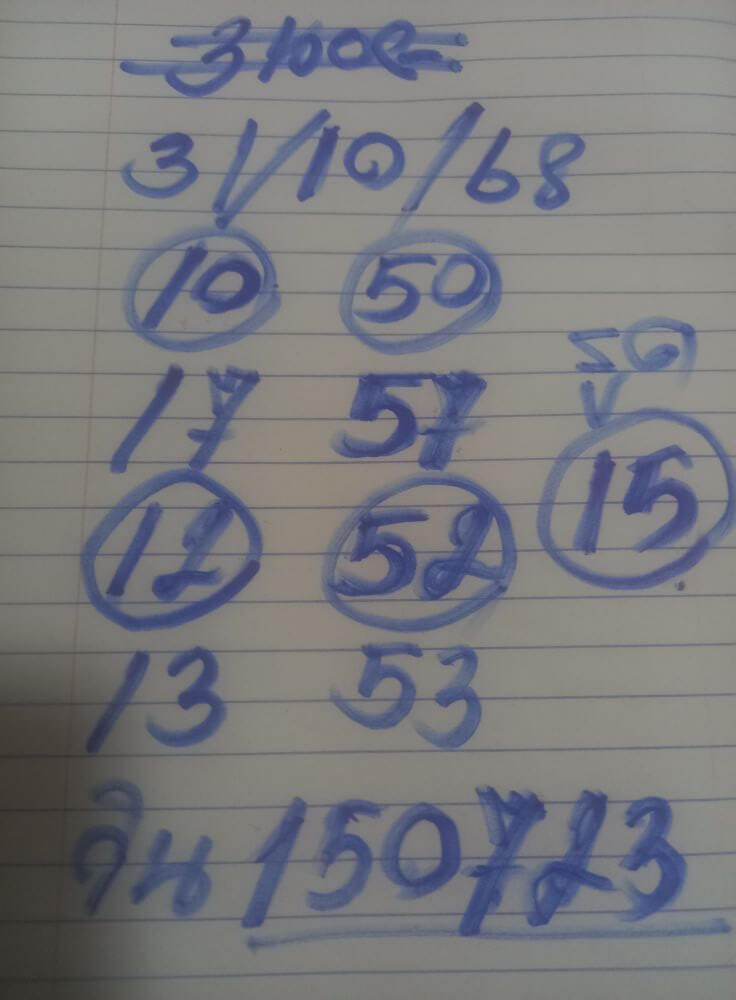 31/10/68
10 50
รูด
17 57
12 52 15
13 53
วิน 150723